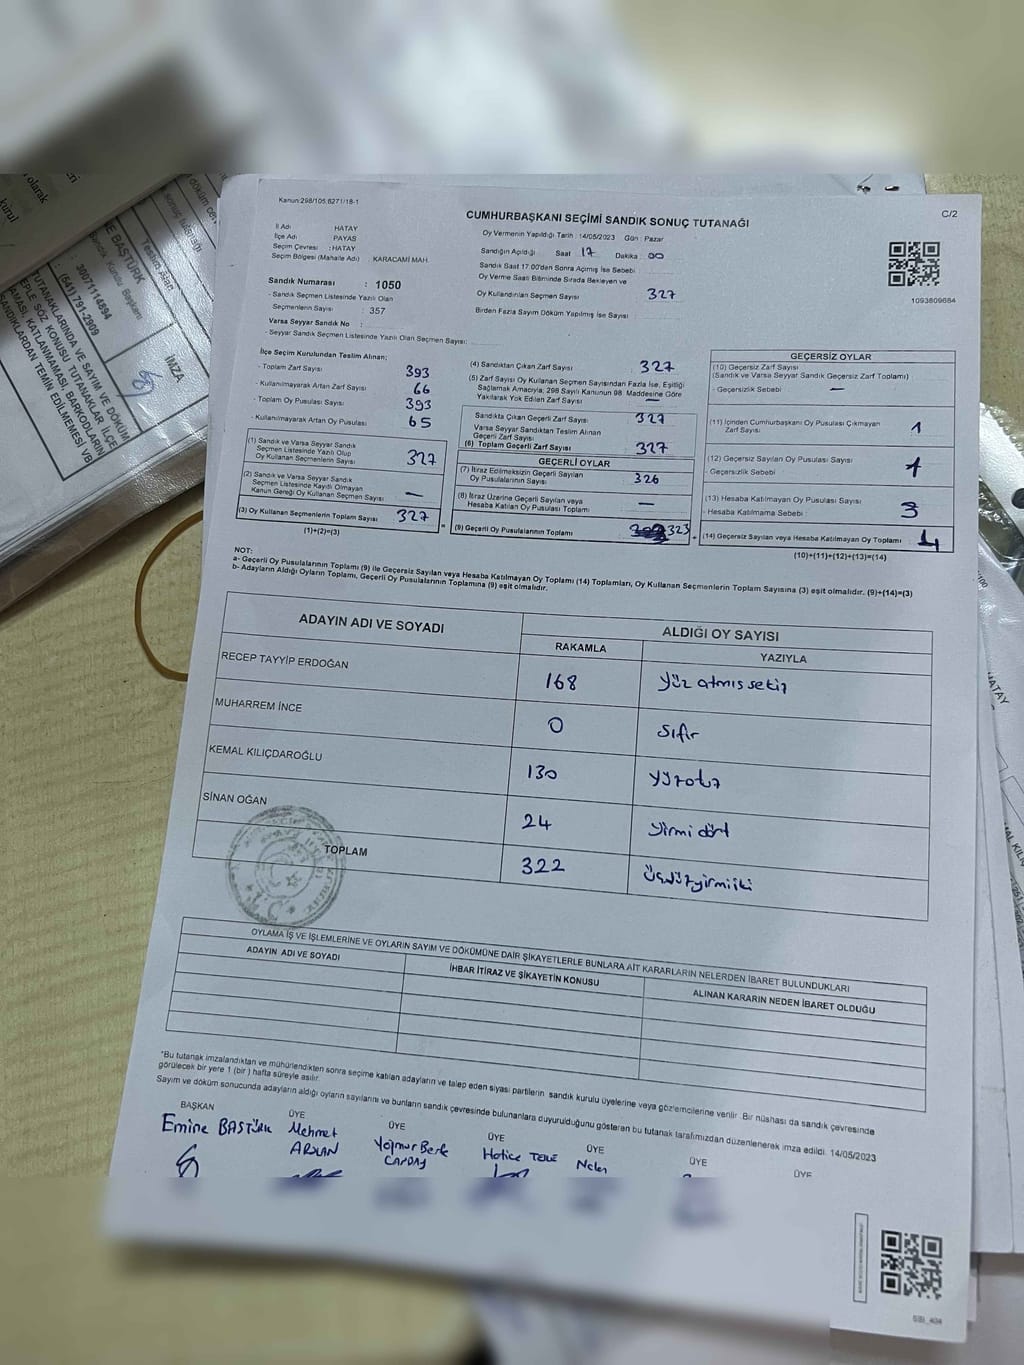 Kanun:298/105,6271/18-1
C/2
CUMHURBAŞKANI SEÇİMİ SANDIK SONUÇ TUTANAĞI
İl Adı HATAY
İlçe Adı PAYAS
Seçim Çevresi : HATAY
Seçim Bölgesi (Mahalle Adı) : KARACAMİ MAH.
Oy Vermenin Yapıldığı Tarih : 14/05/2023 Gün : Pazar
Sandığın Açıldığı Saat 17 Dakika 00
Sandık Saat 17.00'den Sonra Açımış İse Sebebi :
Oy Verme Saati Bitiminde Sırada Bekleyen ve
Oy Kullandırılan Seçmen Sayısı 327
Birden Fazla Sayım Döküm Yapılmış İse Sayısı :
1093809684
Sandık Numarası : 1050
- Sandık Seçmen Listesinde Yazılı Olan
Seçmenlerin Sayısı : 357
Varsa Seyyar Sandık No :
- Seyyar Sandık Seçmen Listesinde Yazılı Olan Seçmen Sayısı:
İlçe Seçim Kurulundan Teslim Alınan;
- Toplam Zarf Sayısı 393
- Kullanılmayarak Artan Zarf Sayısı 66
- Toplam Oy Pusulası Sayısı 393
- Kullanılmayarak Artan Oy Pusulası 65
(1) Sandık ve Varsa Seyyar Sandık
Seçmen Listesinde Yazılı Olup
Oy Kullanan Seçmenlerin Sayısı 327
(2) Sandık ve Varsa Seyyar Sandık
Seçmen Listesinde Kayıtlı Olmayan
Kanun Gereği Oy Kullanan Seçmen Sayısı —
(3) Oy Kullanan Seçmenlerin Toplam Sayısı 327
(1)+(2)=(3)
(4) Sandıktan Çıkan Zarf Sayısı 327
(5) Zarf Sayısı Oy Kullanan Seçmen Sayısından Fazla İse, Eşitliği
Sağlamak Amacıyla; 298 Sayılı Kanunun 98. Maddesine Göre
Yakılarak Yok Edilen Zarf Sayısı —
Sandıkta Çıkan Geçerli Zarf Sayısı 327
Varsa Seyyar Sandıktan Teslim Alınan
Geçerli Zarf Sayısı
(6) Toplam Geçerli Zarf Sayısı 327
GEÇERLİ OYLAR
(7) İtiraz Edilmeksizin Geçerli Sayılan
Oy Pusulalarının Sayısı 326
(8) İtiraz Üzerine Geçerli Sayılan veya
Hesaba Katılan Oy Pusulası Toplamı —
(9) Geçerli Oy Pusulalarının Toplamı 323
GEÇERSİZ OYLAR
(10) Geçersiz Zarf Sayısı
(Sandık ve Varsa Seyyar Sandık Geçersiz Zarf Toplamı)
- Geçersizlik Sebebi —
(11) İçinden Cumhurbaşkanı Oy Pusulası Çıkmayan
Zarf Sayısı 1
(12) Geçersiz Sayılan Oy Pusulası Sayısı
- Geçersizlik Sebebi 1
(13) Hesaba Katılmayan Oy Pusulası Sayısı
- Hesaba Katılmama Sebebi : 3
(14) Geçersiz Sayılan veya Hesaba Katılmayan Oy Toplamı 4
(10)+(11)+(12)+(13)=(14)
NOT:
a- Geçerli Oy Pusulalarının Toplamı (9) ile Geçersiz Sayılan veya Hesaba Katılmayan Oy Toplamı (14) Toplamları, Oy Kullanan Seçmenlerin Toplam Sayısına (3) eşit olmalıdır. (9)+(14)=(3)
b- Adayların Aldığı Oyların Toplamı, Geçerli Oy Pusulalarının Toplamına (9) eşit olmalıdır.
ADAYIN ADI VE SOYADI ALDIĞI OY SAYISI
RAKAMLA YAZIYLA
RECEP TAYYİP ERDOĞAN 168 Yüz atmış sekiz
MUHARREM İNCE 0 sıfır
KEMAL KILIÇDAROĞLU 130 yüzotuz
SİNAN OĞAN 24 yirmi dört
TOPLAM 322 üçyüzyirmiiki
OYLAMA İŞ VE İŞLEMLERİNE VE OYLARIN SAYIM VE DÖKÜMÜNE DAİR ŞİKAYETLERLE BUNLARA AİT KARARLARIN NELERDEN İBARET BULUNDUKLARI
ADAYIN ADI VE SOYADI İHBAR İTİRAZ VE ŞİKAYETİN KONUSU ALINAN KARARIN NEDEN İBARET OLDUĞU
*Bu tutanak imzalandıktan ve mühürlendikten sonra seçime katılan adayların ve talep eden siyasi partilerin sandık kurulu üyelerine veya gözlemcilerine verilir. Bir nüshası da sandık çevresinde
görülecek bir yere 1 (bir) hafta süreyle asılır.
Sayım ve döküm sonucunda adayların aldığı oyların sayılarını ve bunların sandık çevresinde bulunanlara duyurulduğunu gösteren bu tutanak tarafımızdan düzenlenerek imza edildi. 14/05/2023
BAŞKAN ÜYE ÜYE ÜYE ÜYE ÜYE ÜYE
Emine BAŞTÜRK Mehmet Yağmur Berk Hatice